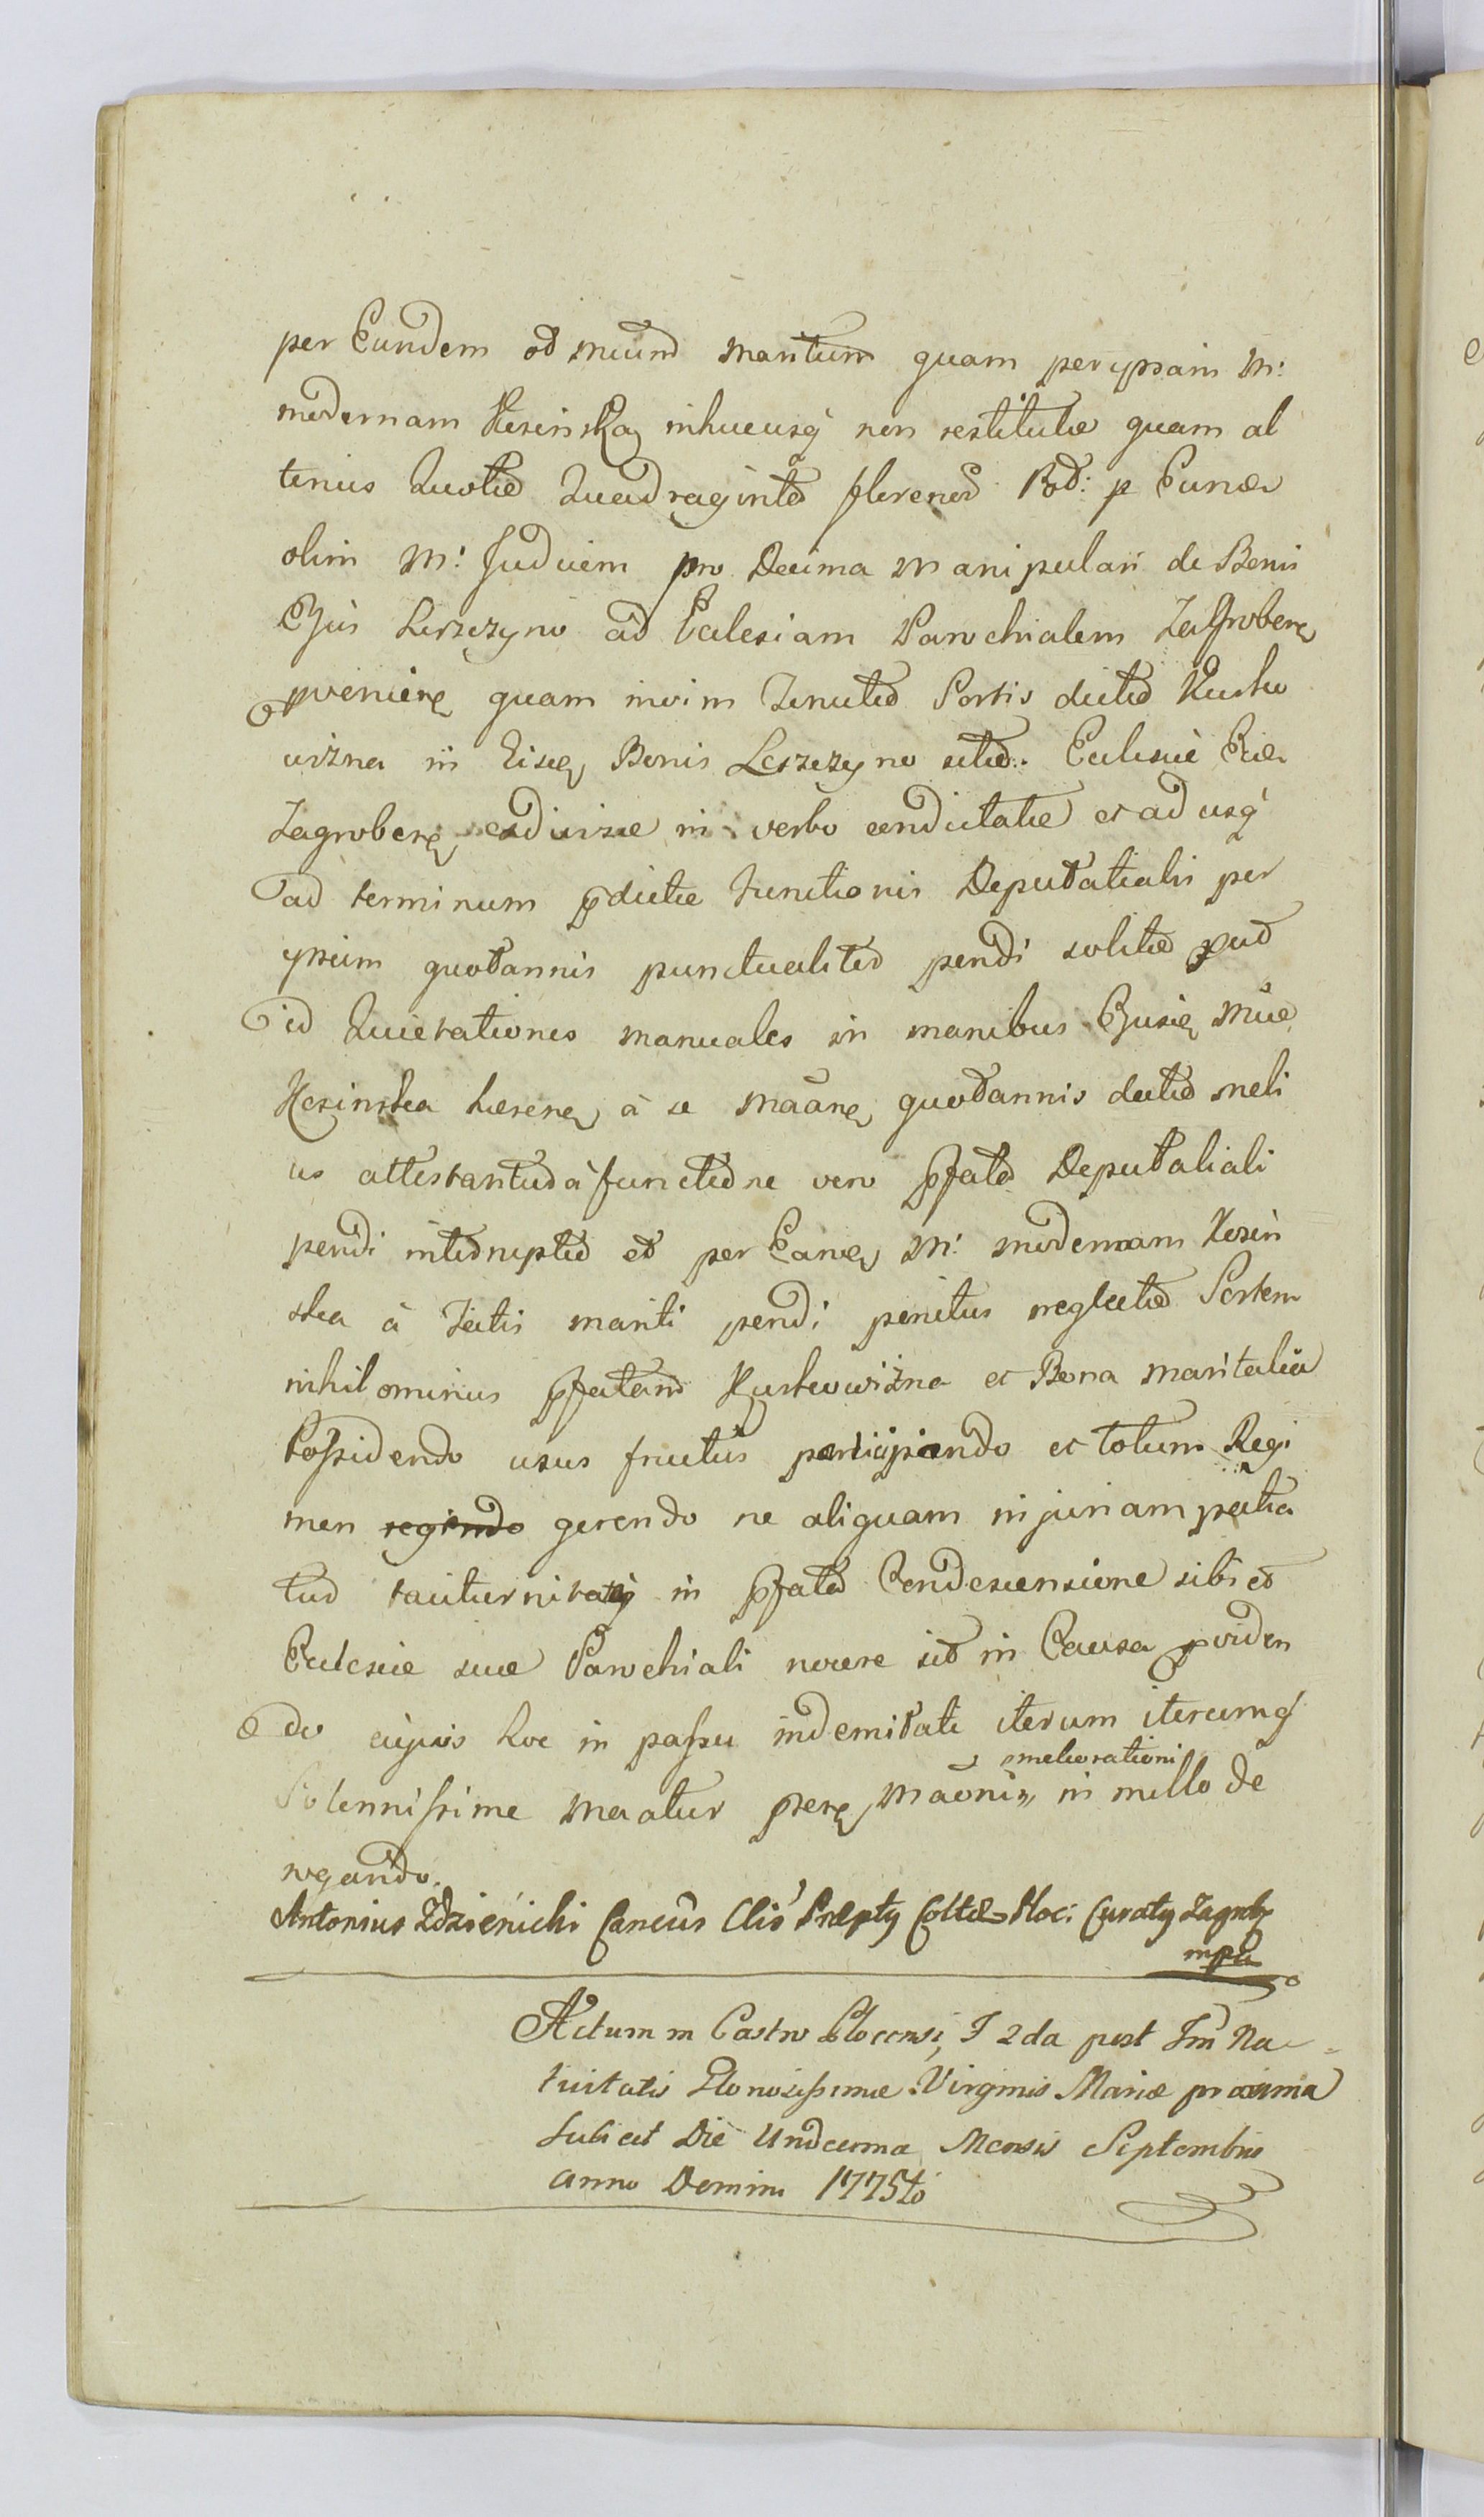 per Eundem od suum maritum quam per ipsam M:
modernam Kosinską inhucusq non restitutæ quam al
terius Quotæ Quadraginta floreno Pol: p Eunde
olim M: Judicem pro Decima Manipulari de Bonis
Ejus Leszczyno ad Ecclesiam Parochialem Zagroben
pvenien quam inoim Tenutæ Sortis dictæ Kurko
wizna in Eisde Bonis Leszczyno sitæ. Ecclesiæ Ejde
Zagroben in verbo conductatæ et ad usq
ad terminum pdictæ functionis Deputatialis per
ipsum quotannis punctualiter pendi solitæ put
id Quietationes manuales in manibus Ejusde Mcæ
Kosinska hæren à se Maãne quotannis datæ meli
us attestantur à functione vero pfata Deputaliali
pendi interrupta et per Eande M: modernam Kosin
ska à fatis mariti pendi penitus neglecta Sortem
nihilominus pfatam Kurkowizna et Bona maritalia
Possidendo usus fructus participiando et totum Regi
men regendo gerendo ne aliquam injuriam patia
tur taciturnitasq in pfata Condescensione sibi et
Ecclesiæ suæ Parochiali nocere sit in Causa pviden
do cujus hoc in passu indemitati iterum iterumq
Solennissime Maatur psen Maoni melioratione in nullo de
rogando.
Antonius Zdzienicki Cancus Clis Præptq Coltæ Ploc: Curatq Zagrob
mpa
Actum in Castro Plocensi, F 2da post Fm Na
tivitatis Glonosissimæ Virginis Mariæ proxima
Sciliceet Die Undecima Mensis Septembris
Anno Domini 1775to